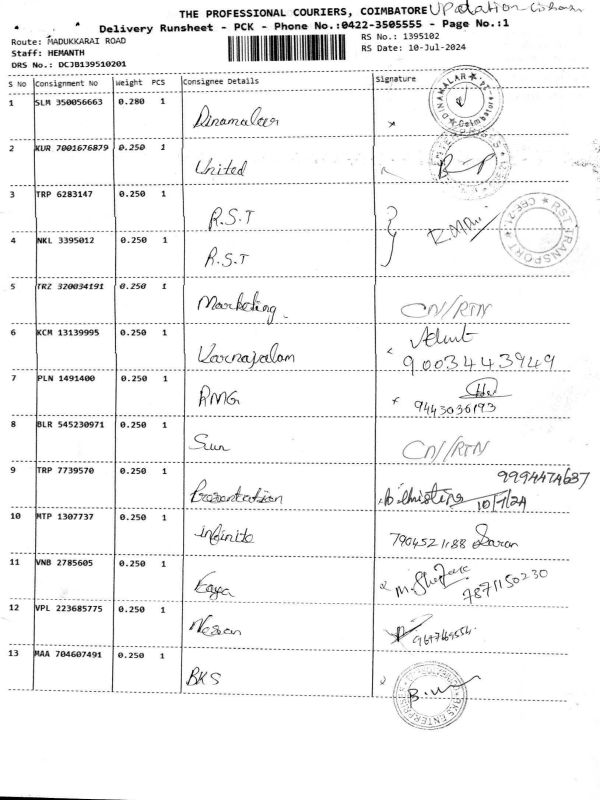 THE PROFESSIONAL COURIERS, COIMBATORE Updation
Delivery Runsheet - PCK - Phone No.:0422-3505555 - Page No.:1
Route: MADUKKARAI ROAD RS No.: 1395102
Staff: HEMANTH RS Date: 10-Jul-2024
DRS No.: DCJB139510201
S No Consignment No Weight PCS Consignee Details Signature
1 SLM 350056663 0.280 1 Dinamalar
DINAMALAR Coimbatore
2 KUR 7001676879 0.250 1 United
3 TRP 6283147 0.250 1 R.S.T
RST TRANSPORT CBE-21
4 NKL 3395012 0.250 1 R.S.T
5 TRZ 320034191 0.250 1 Marketing CN//RTN
6 KCM 13139995 0.250 1 9003443949
7 PLN 1491400 0.250 1 RMG 9443036193
8 BLR 545230971 0.250 1 Sun CN//RTN
9 TRP 7739570 0.250 1 10/7/24
10 MTP 1307737 0.250 1 infinito 7904521188 Saran
11 VNB 2785605 0.250 1 7871150230
12 VPL 223685775 0.250 1
13 MAA 704607491 0.250 1 BKS
BKS ENTERPRISES